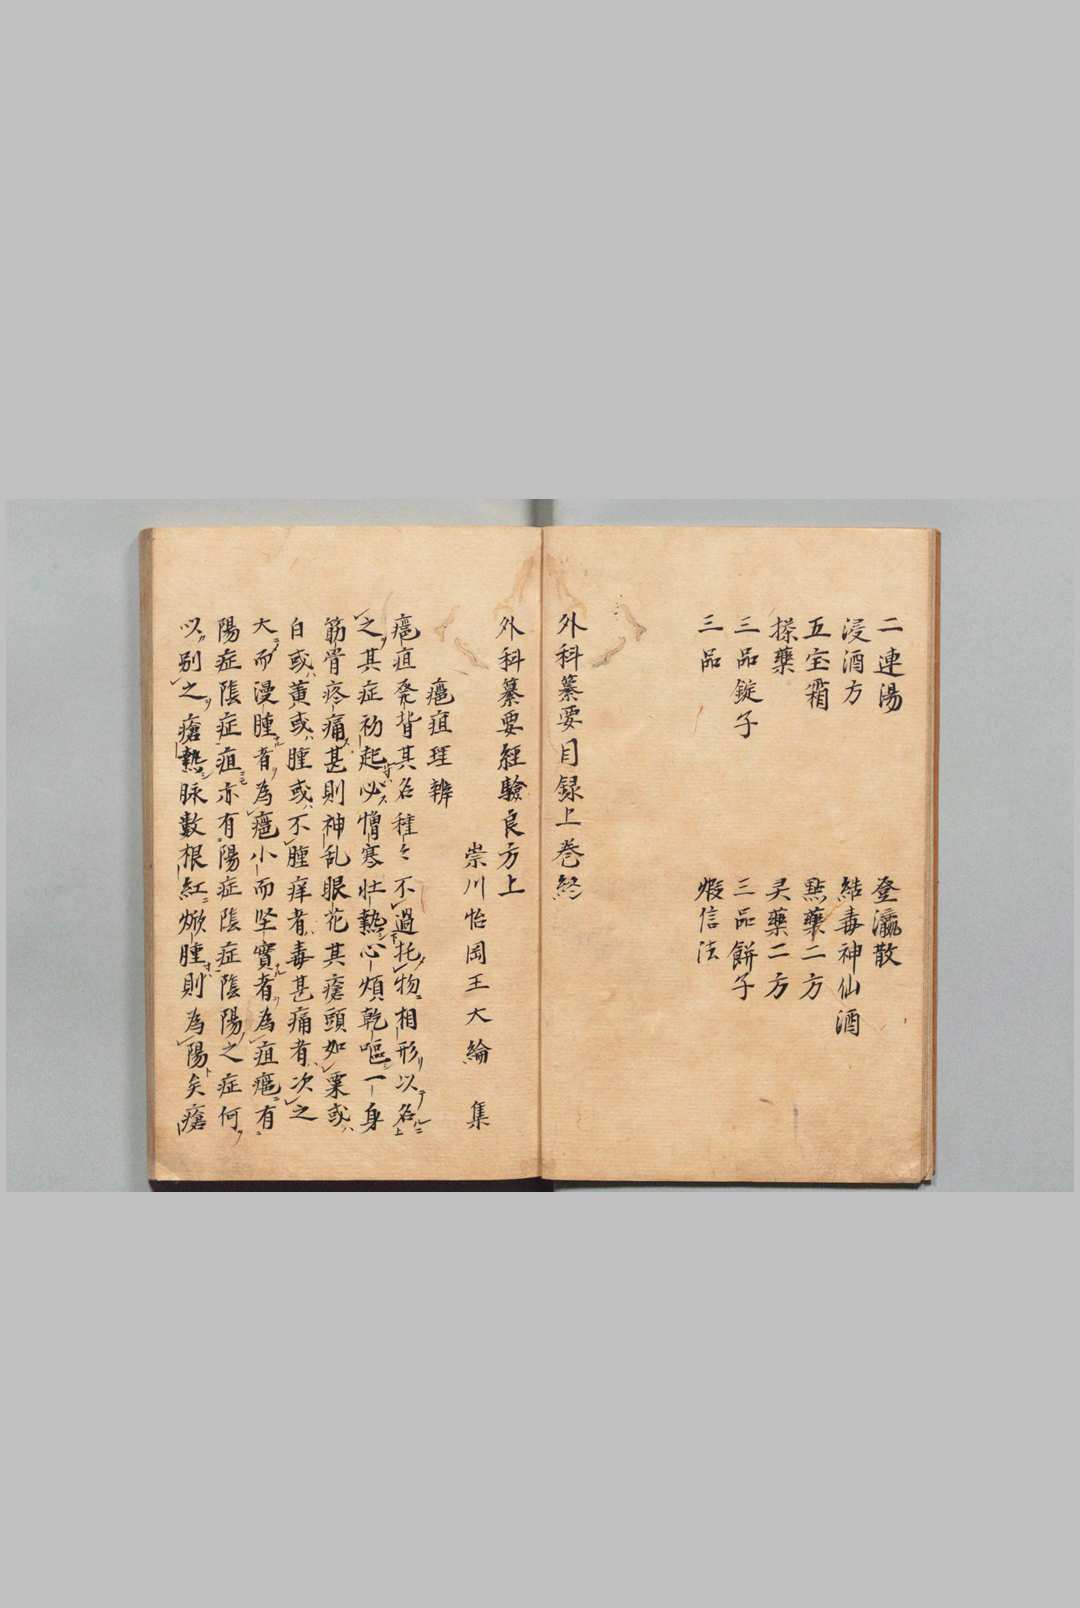 二連湯　登瀛散
浸酒方　結毒神仙酒
五宝霜　點藥二方
搽藥　灵藥二方
三品錠子　三品餅子
三品　煆信法
外科纂要目録上巻終
外科纂要經驗良方上
崇川怡岡王大綸　集
癰疽理辨
癰疽発背其名種々不過托物相形以名
之其症初起必憎寒壮熱心煩乾嘔一身
筋骨疼痛甚則神乱眼花其瘡頭如粟或
白或黄或腫或不腫痒者毒甚痛者次之
大而漫腫者為癰小而坚實者為疽癰有
陽症陰症疽亦有陽症陰症陰陽之症何
以別之瘡熱脉數根紅焮腫則為陽矣瘡